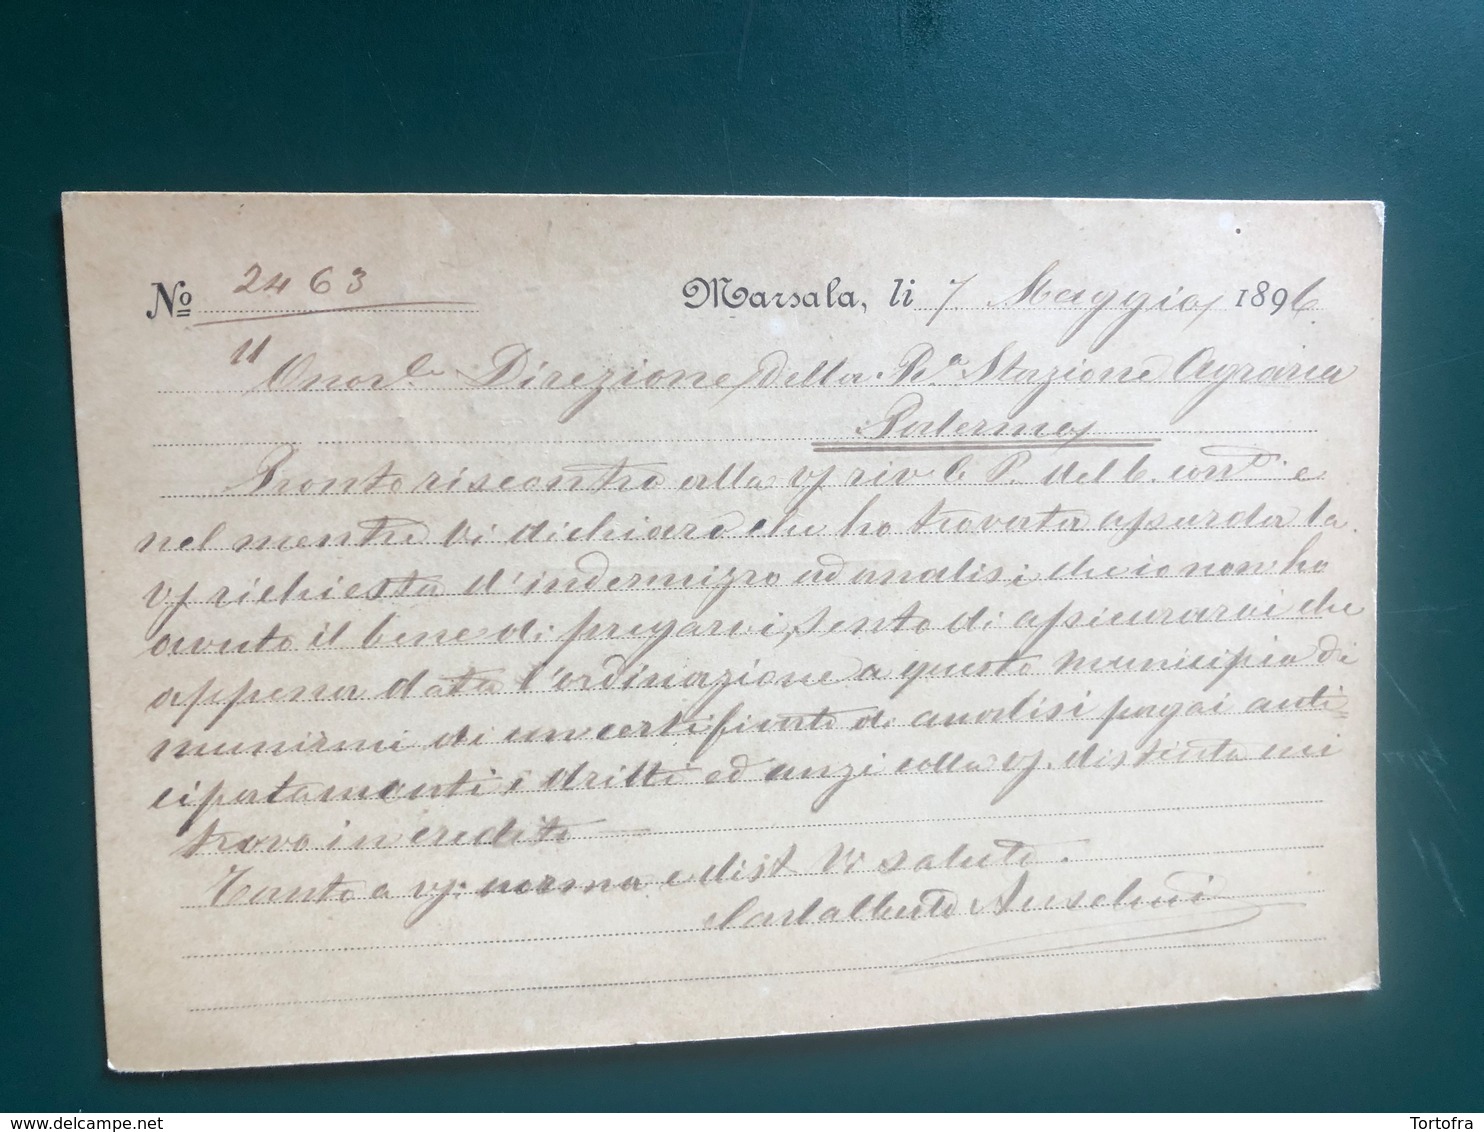 No 2463
Marsala, li 7. Maggio 1896
Onorle Direzione della Ra Stazione Agraria
Palermo
Pronto riscontro alla
nel mentre Vi dichiaro che ho trovata assurda la
Vs richiesta d'indennizzo ad analisi che io non ho
avuto il bene di pregarvi, sento di assicurarvi che
appena data l'ordinazione a questo municipio di
munirmi di un certificato di analisi pagai anti=
cipatamente i dritti ed anzi colla Vs. distinta mi
trovo in credito —
Tanto a Vs: norma e dist Vi saluto.
Carlalberto Anselmi
delcampe.net
Tortofra